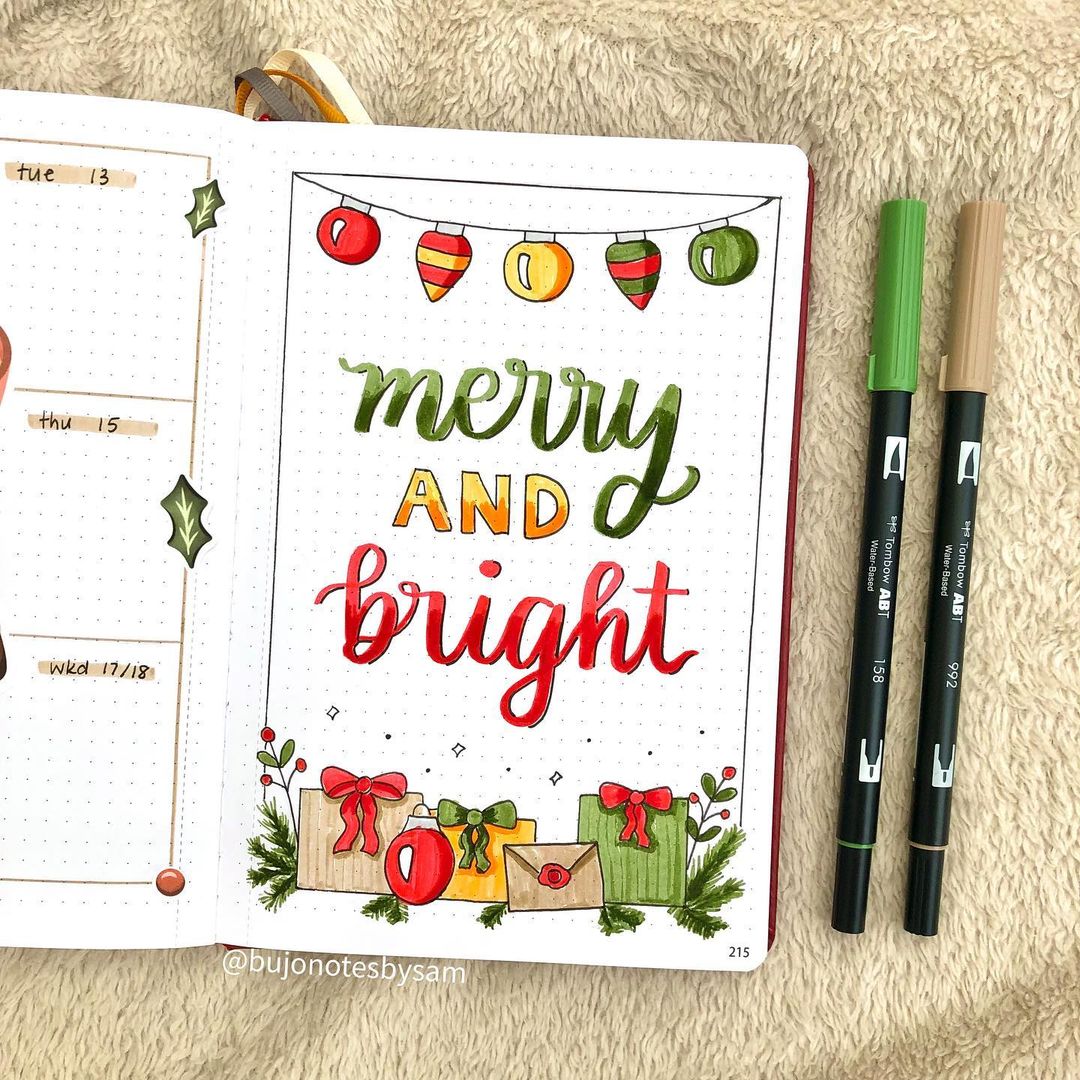 tue 13
thu 15
wkd 17/18
merry
AND
bright
215
@bujonotesbysam
Tombow ABT
Water-Based
158
Tombow ABT
Water-Based
992